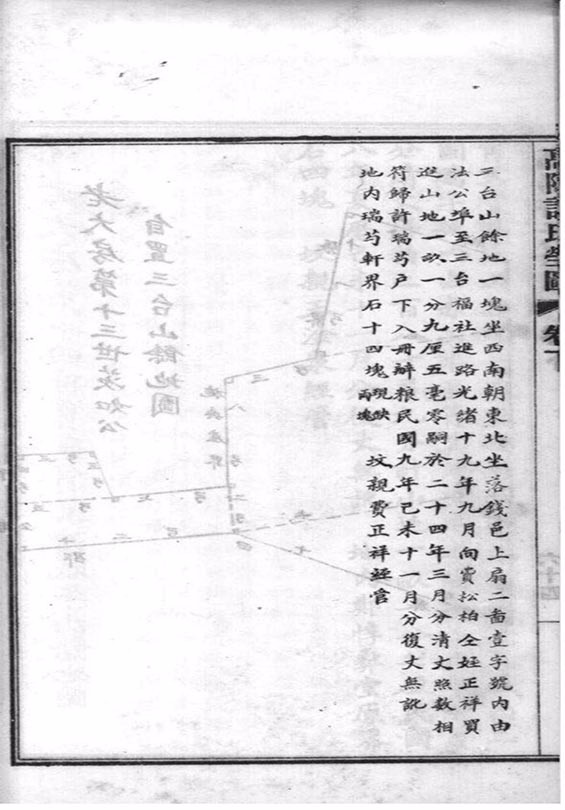 高陽許氏塋圖 卷下
三台山餘地一塊坐西南朝東北坐落錢邑上扇二啚壹字號內由
法公埠至三台福社進路光緒十九年九月向費松柏仝姪正祥買
進山地一畝一分九厘五毫零嗣於二十四年三月分清丈照數相
符歸許瑞芍户下入冊辦粮民國九年己未十一月分復丈無訛
地內瑞芍軒界石十四塊現缺兩塊 坟親費正祥經管
老大房第十三世茨如公
自置三台山餘地圖